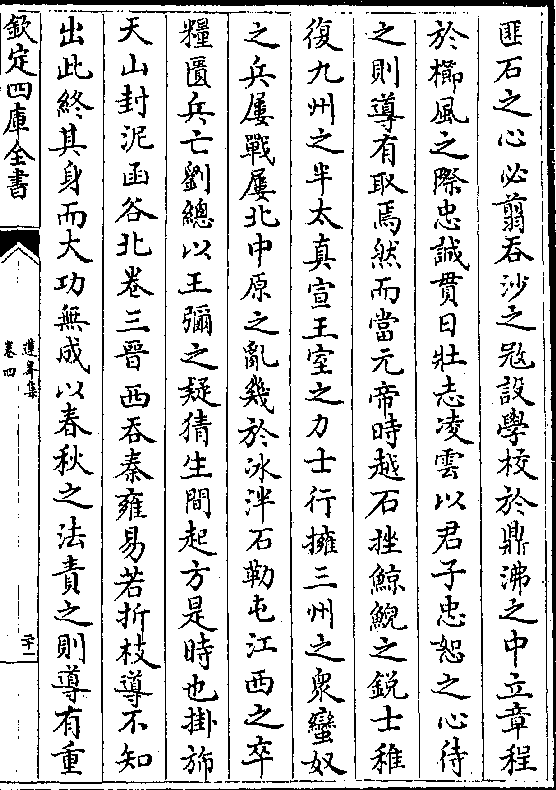 匪石之心必翦吞沙之㓂設學校於鼎沸之中立章程
於櫛風之際忠誠貫日壯志凌雲以君子忠恕之心待
之則導有取焉然而當元帝時越石挫鯨鯢之鋭士稚
復九州之半太真宣王室之力士行擁三州之衆蠻奴
之兵屢戰屢北中原之亂幾於冰泮石勒屯江西之卒
糧匱兵亡劉總以王彌之疑猜生間起方是時也掛斾
天山封泥函谷北卷三晉西吞秦雍易若折枝導不知
出此終其身而大功無成以春秋之法責之則導有重
欽定四庫全書
卷四
二十一